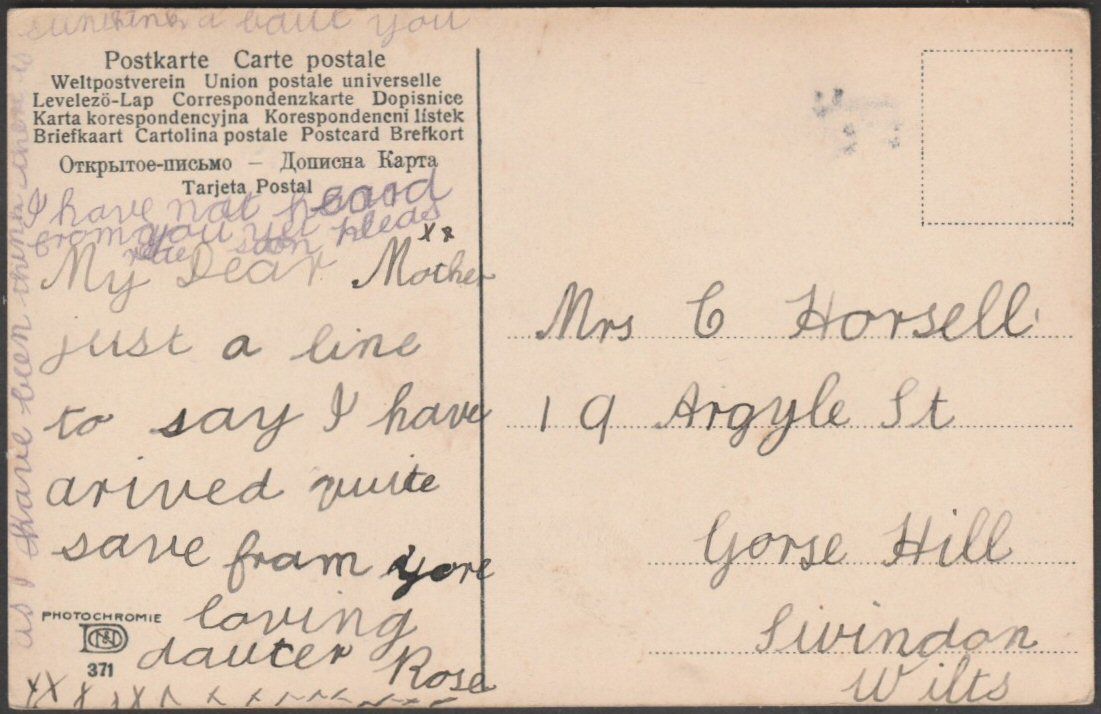 sumthink a baut you
Postkarte Carte postale
Weltpostverein Union postale universelle
Levelező-Lap Correspondenzkarte Dopisnice
Karta korespondencyjna Korespondencni listek
Briefkaart Cartolina postale Postcard Brefkort
Открытое-письмо — Дописна Карта
Tarjeta Postal
I have not heard
from you yet
soon pleas
xx
My Dear Mother
just a line
to say I have
arived quite
save fram yore
loving
dauter Rose
as I have been think there is
PHOTOCHROMIE
371
Mrs C Horsell
19 Argyle St
Gorse Hill
Swindon
Wilts